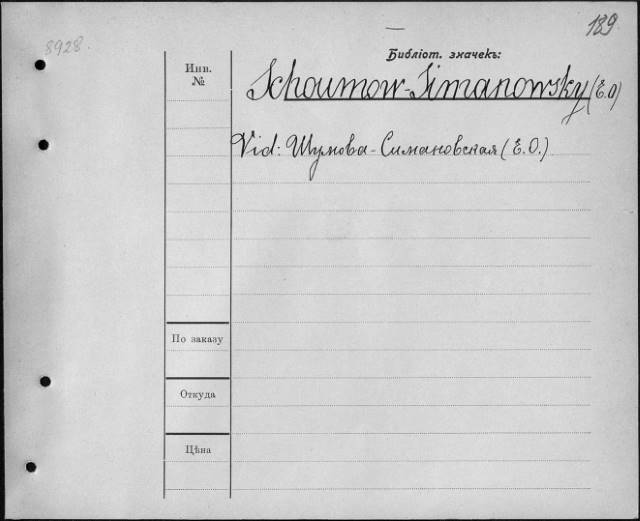 189.
8928.
Библіот. значекъ:
Инв.
№
Schoumow-Simanowsky (E.O)
Vid: Шумова-Симановская (Е.О.)
По заказу
Откуда
Цѣна